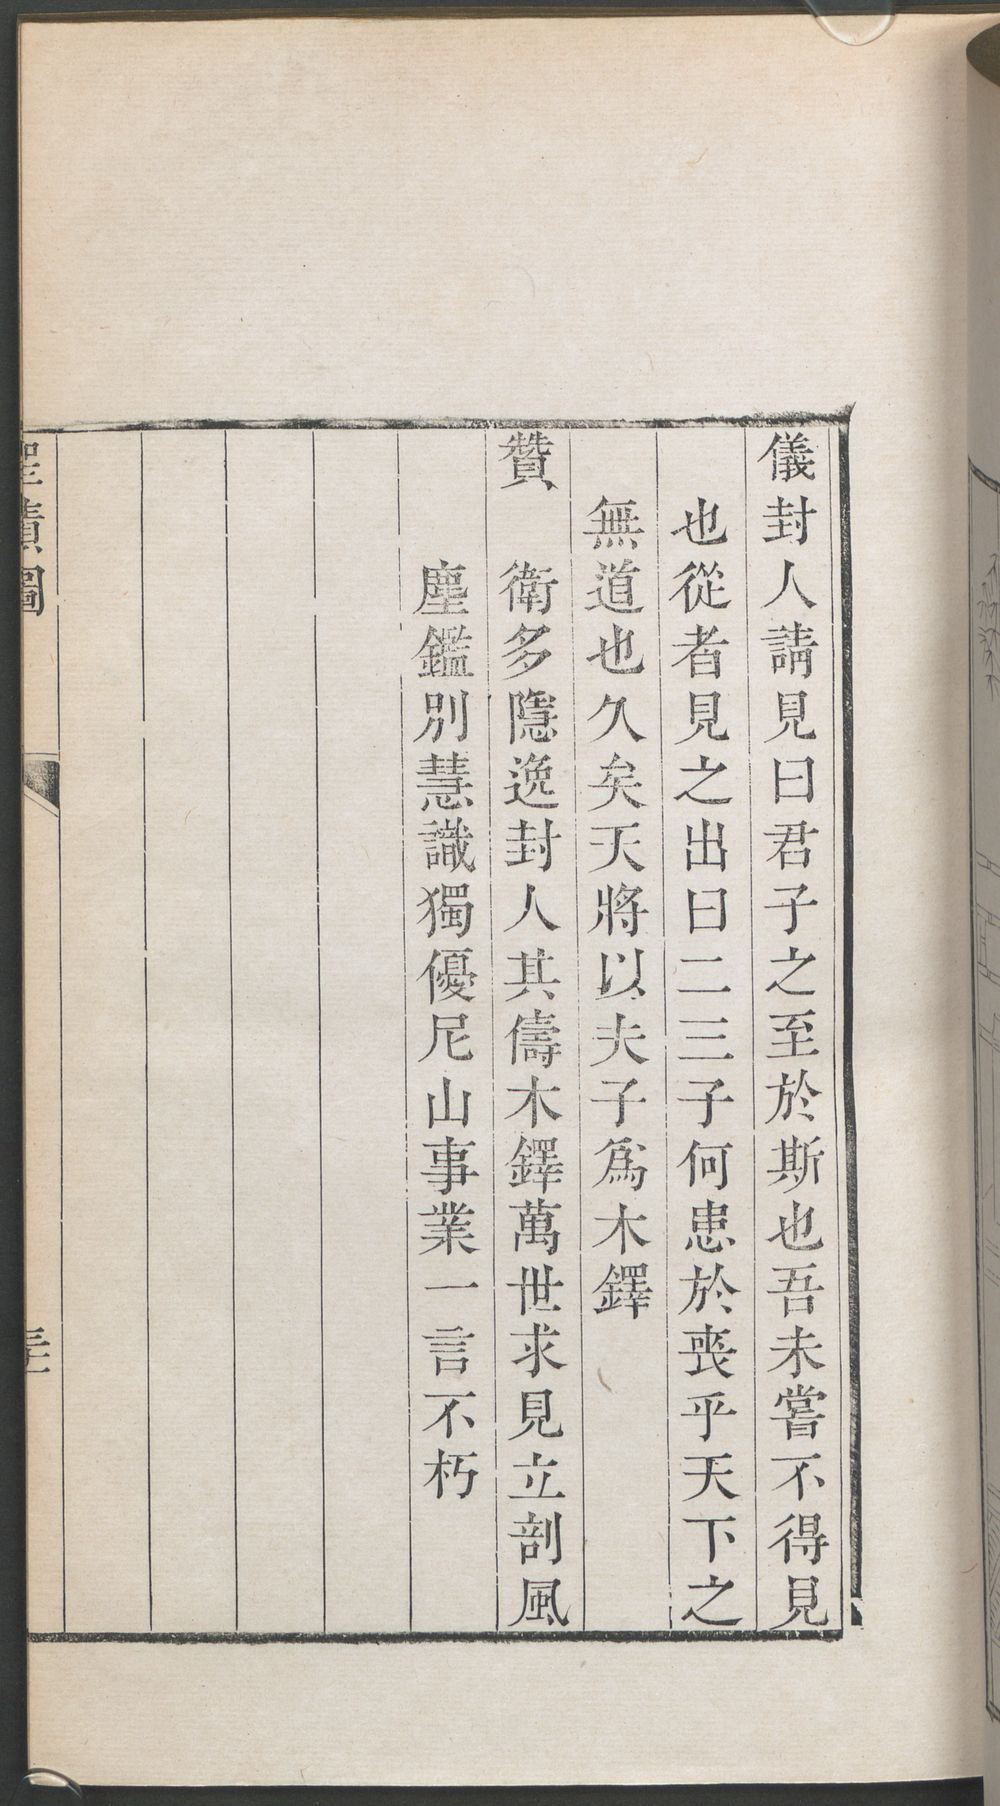 儀封人請見曰君子之至於斯也吾未嘗不得見
也從者見之出曰二三子何患於喪乎天下之
無道也久矣天將以夫子爲木鐸
贊　衛多隱逸封人其儔木鐸萬世求見立剖風
塵鑑別慧識獨優尼山事業一言不朽
聖蹟圖